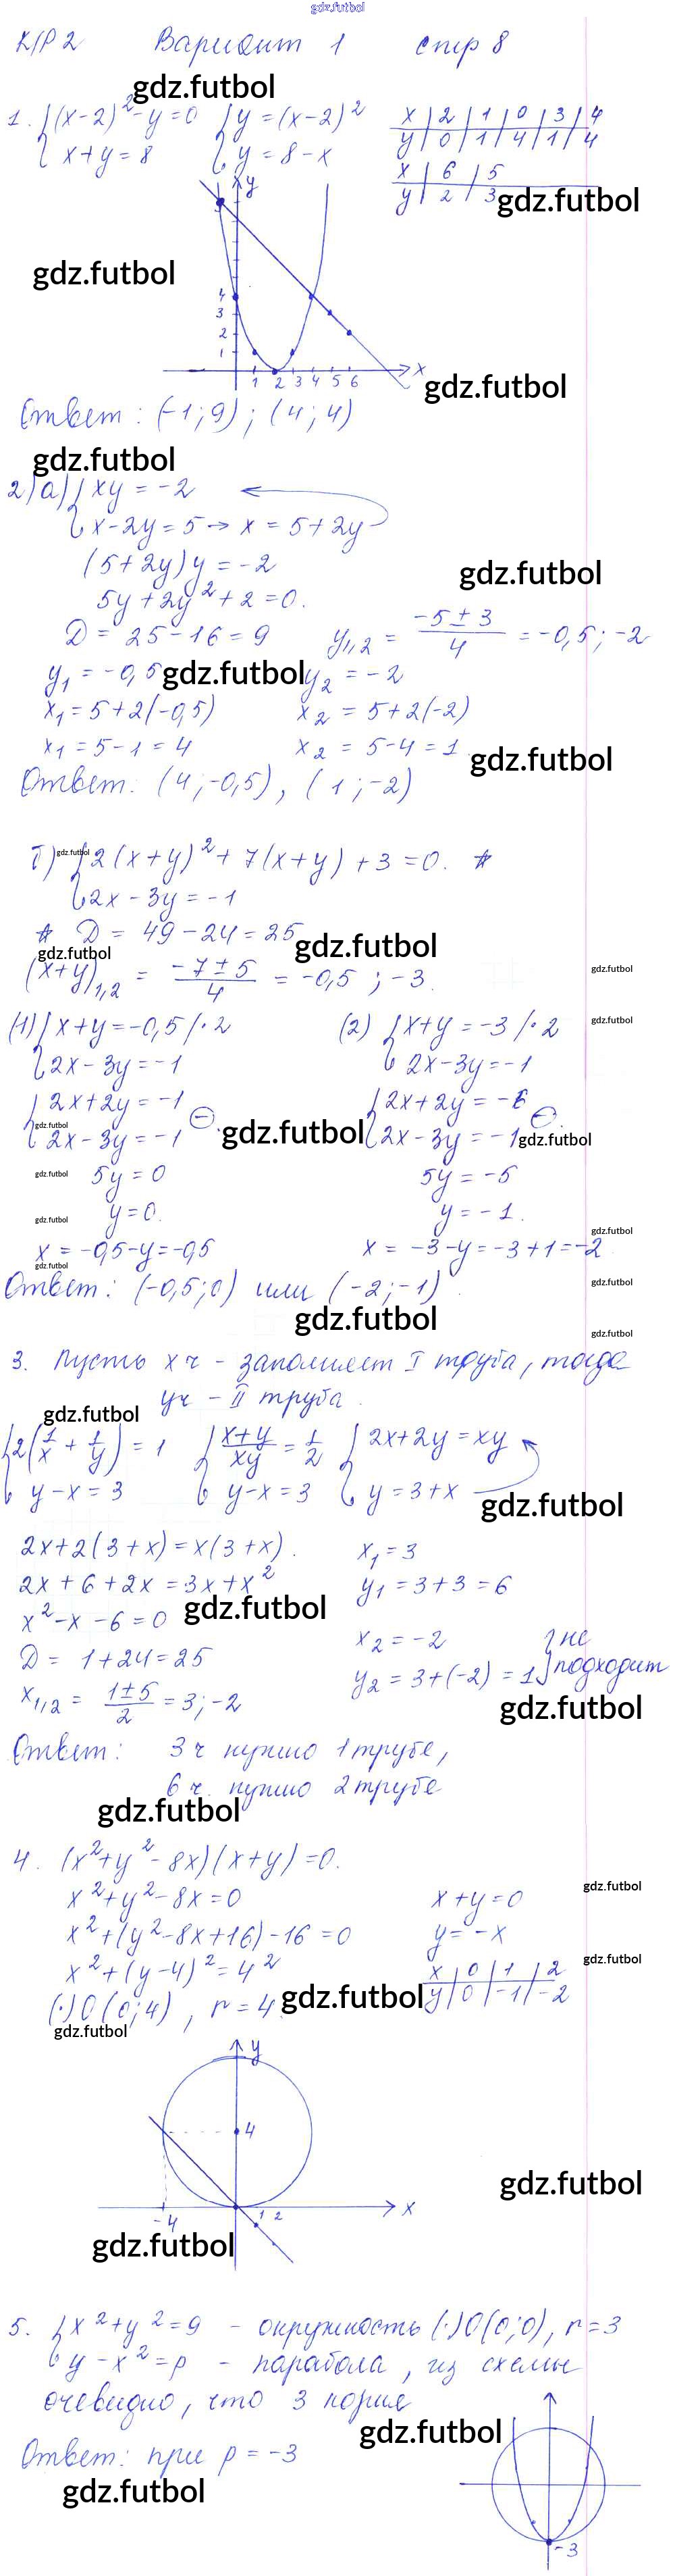 gdz.futbol
К/Р 2 Вариант 1 стр 8
gdz.futbol
1. {(x-2)²-y=0 {y=(x-2)² x | 2 | 1 | 0 | 3 | 4
x+y=8 y=8-x y | 0 | 1 | 4 | 1 | 4
x | 6 | 5
y | 2 | 3
gdz.futbol
y
gdz.futbol
4
3
2
1
1 2 3 4 5 6 x
gdz.futbol
Ответ: (-1;9); (4;4)
gdz.futbol
2) а) {xy=-2
x-2y=5 → x=5+2y
(5+2y)y=-2
gdz.futbol
5y+2y²+2=0.
D=25-16=9 y1,2 = (-5±3)/4 = -0,5; -2
y1=-0,5 gdz.futbol y2=-2
x1=5+2(-0,5) x2=5+2(-2)
x1=5-1=4 x2=5-4=1
gdz.futbol
Ответ: (4;-0,5), (1;-2)
б) gdz.futbol {2(x+y)²+7(x+y)+3=0. *
2x-3y=-1
* D=49-24=25
gdz.futbol gdz.futbol
(x+y)1,2 = (-7±5)/4 = -0,5; -3.
gdz.futbol
(1) {x+y=-0,5 /·2 (2) {x+y=-3 /·2
gdz.futbol
2x-3y=-1 2x-3y=-1
{2x+2y=-1 {2x+2y=-6
gdz.futbol ⊖ gdz.futbol ⊖
2x-3y=-1 2x-3y=-1 gdz.futbol
gdz.futbol 5y=0 5y=-5
gdz.futbol y=0. y=-1.
gdz.futbol
x=-0,5-y=-0,5 x=-3-y=-3+1=-2
gdz.futbol
Ответ: (-0,5;0) или (-2;-1).
gdz.futbol
gdz.futbol
gdz.futbol
3. Пусть x ч - заполняет I труба, тогда
y ч - II труба.
gdz.futbol
{2(1/x + 1/y)=1 {(x+y)/xy = 1/2 {2x+2y=xy
y-x=3 y-x=3 y=3+x
gdz.futbol
2x+2(3+x)=x(3+x). x1=3
2x+6+2x=3x+x² y1=3+3=6
gdz.futbol
x²-x-6=0
D=1+24=25 x2=-2 } не
x1,2 = (1±5)/2 = 3; -2 y2=3+(-2)=1 подходит
gdz.futbol
Ответ: 3 ч нужно 1 трубе,
6 ч. нужно 2 трубе
gdz.futbol
4. (x²+y²-8x)(x+y)=0.
gdz.futbol
x²+y²-8x=0 x+y=0
x²+(y²-8x+16)-16=0 y=-x
gdz.futbol
x²+(y-4)²=4² x | 0 | 1 | 2
(·)O(0;4), r=4. gdz.futbol y | 0 | -1 | -2
gdz.futbol
y
4
gdz.futbol
-4 1 2 x
gdz.futbol
5. {x²+y²=9 - окружность (·)O(0;0), r=3
y-x²=p - парабола, из схемы
очевидно, что 3 корня
gdz.futbol
Ответ: при p=-3
gdz.futbol
-3